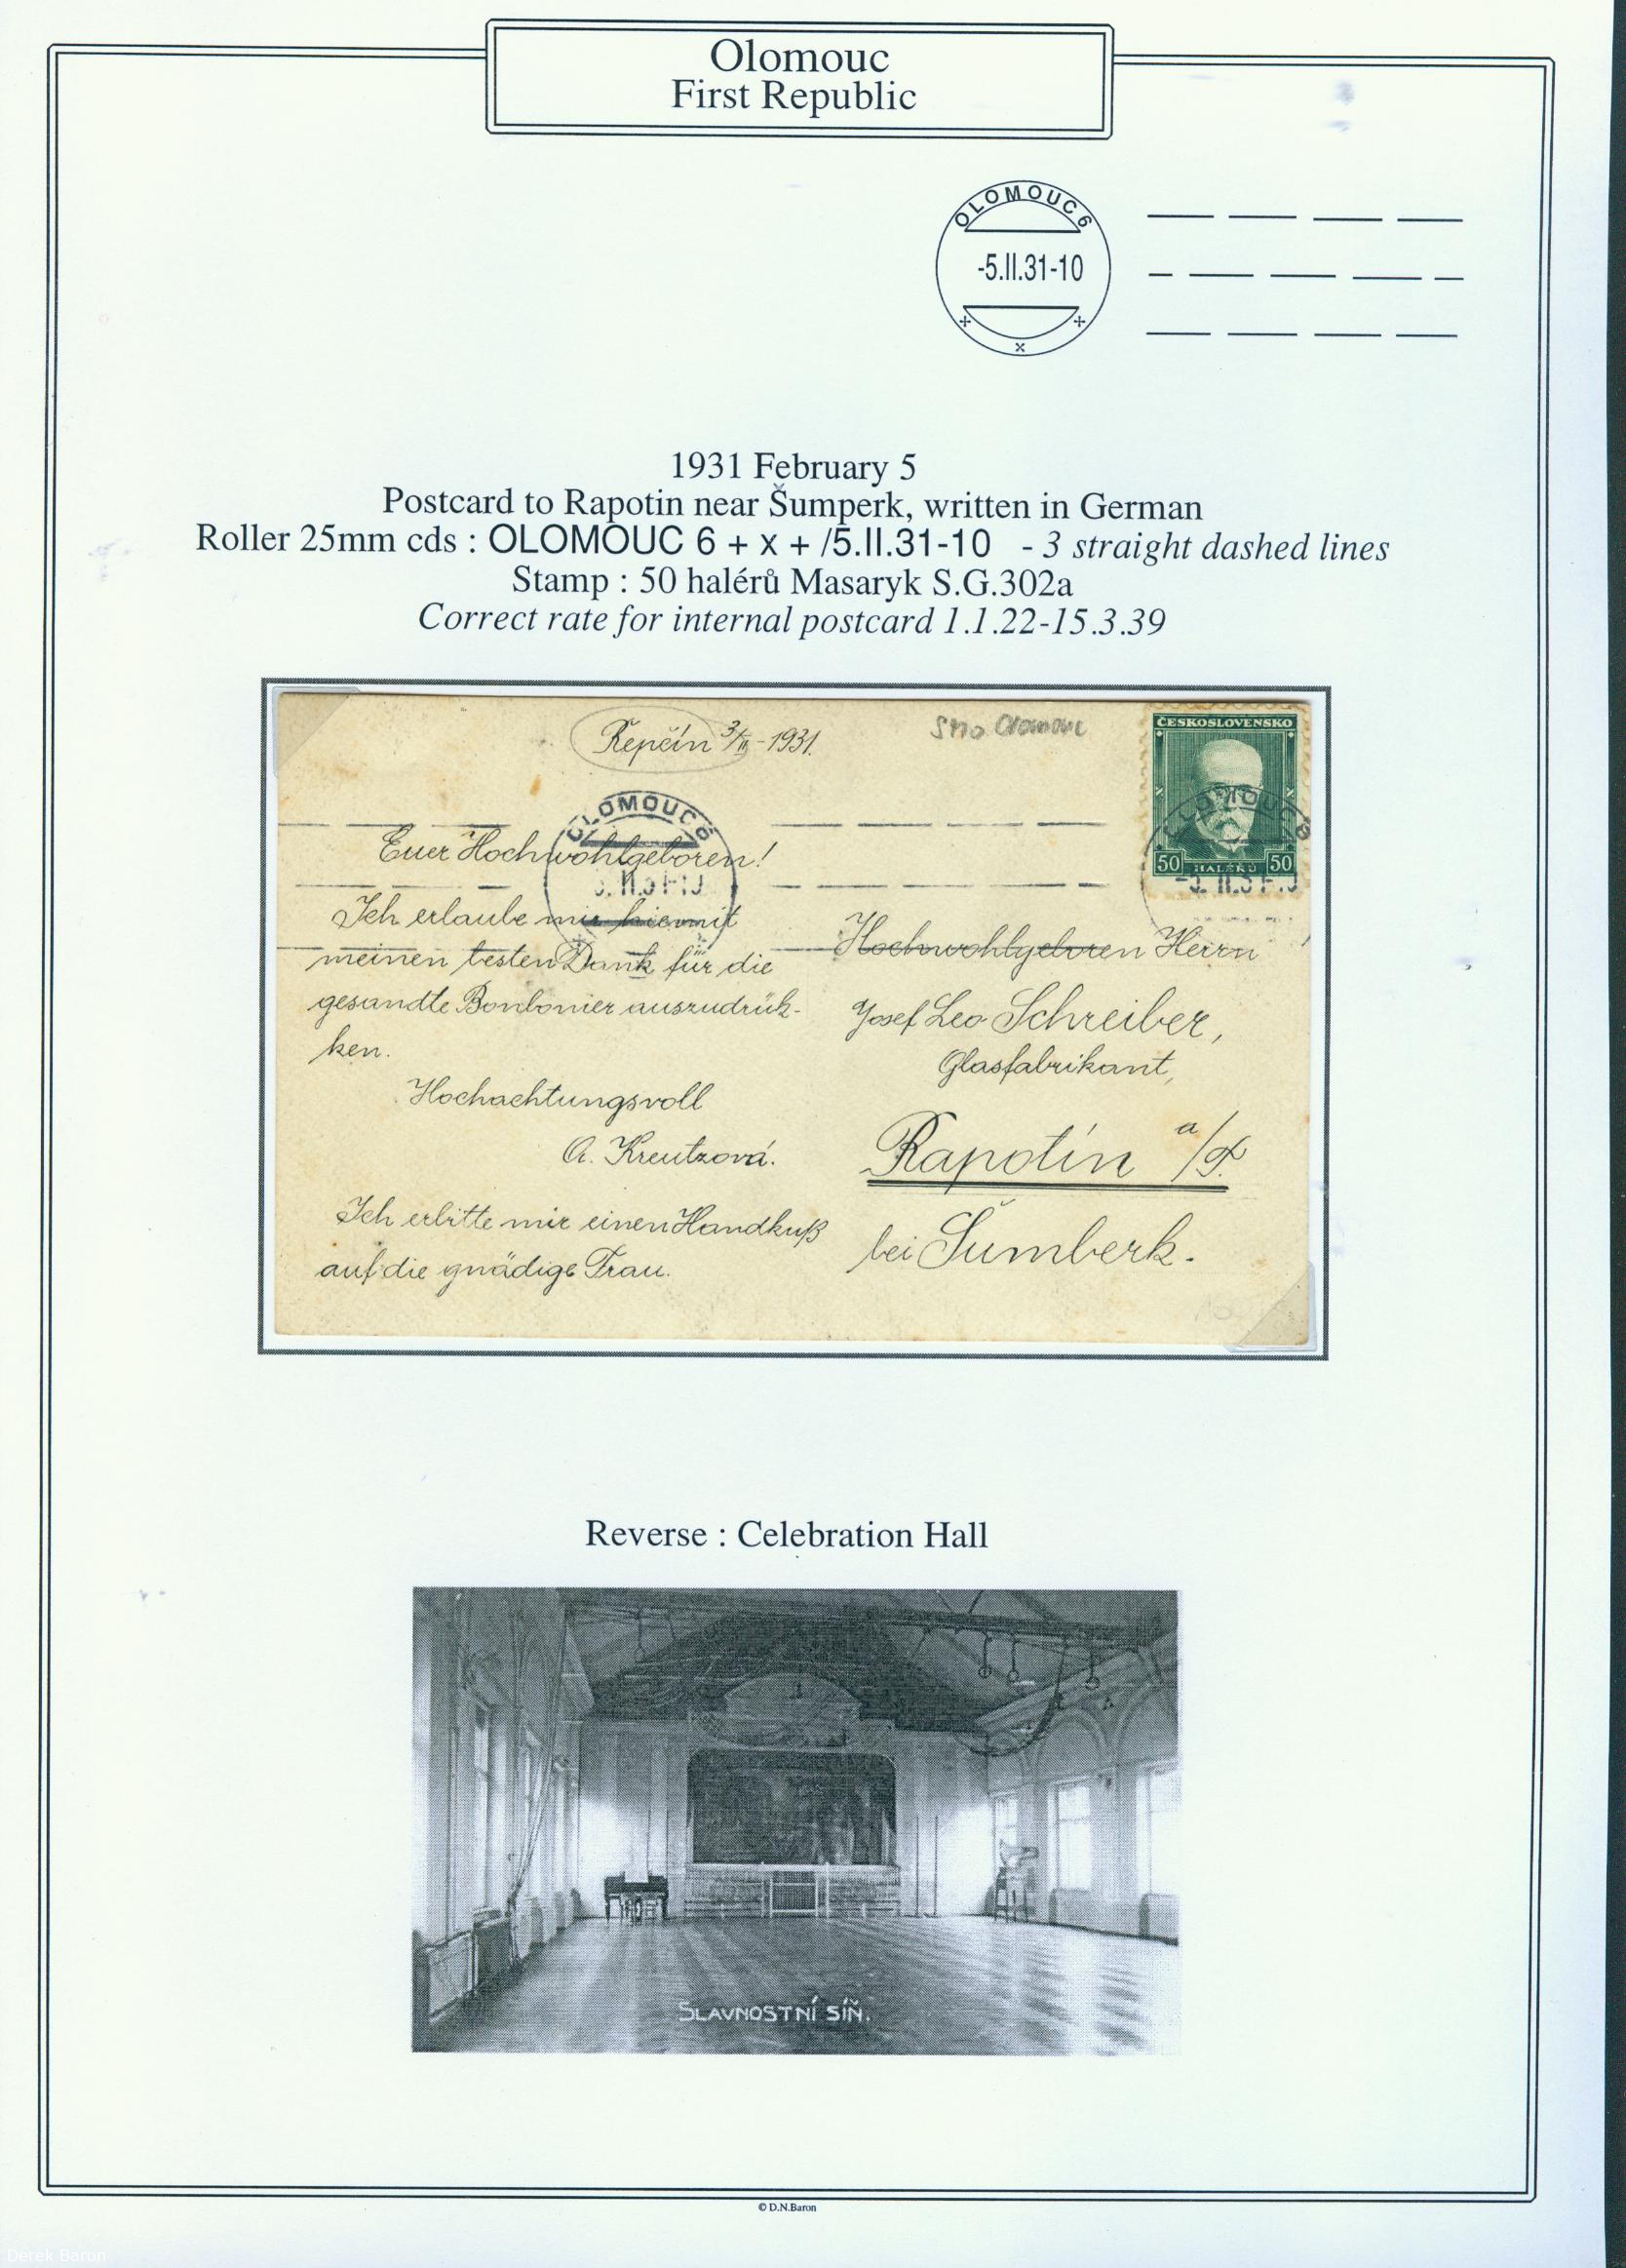 Olomouc
First Republic
OLOMOUC 6
-5.II.31-10
+ x +
1931 February 5
Postcard to Rapotin near Šumperk, written in German
Roller 25mm cds : OLOMOUC 6 + x + /5.II.31-10 - 3 straight dashed lines
Stamp : 50 halérů Masaryk S.G.302a
Correct rate for internal postcard 1.1.22-15.3.39
Řepčín 3/II-1931.
Olomouc
ČESKOSLOVENSKO
50 HALÉŘŮ 50
OLOMOUC 6
OLOMOUC 6
Euer Hochwohlgeboren!
Ich erlaube mir hiermit
meinen besten Dank für die
gesandte Bonbonier auszudrük-
ken.
Hochachtungsvoll
A. Kreutzová.
Ich erbitte mir einen Handkuß
auf die gnädige Frau.
Hochwohlgeboren Herrn
Josef Leo Schreiber,
Glasfabrikant,
Rapotín a/T.
bei Šumberk.
Reverse : Celebration Hall
SLAVNOSTNÍ SÍŇ.
© D.N.Baron
Derek Baron